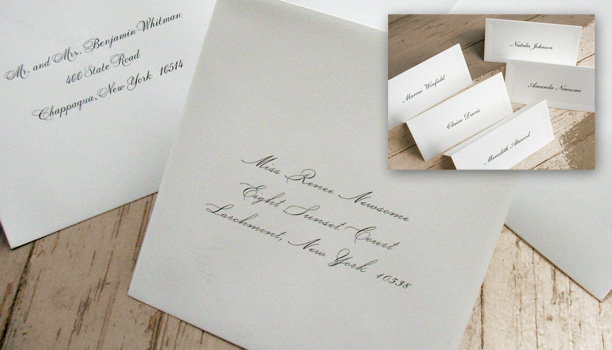 Mr. and Mrs. Benjamin Whitman
466 State Road
Chappaqua, New York 10514
Miss Renee Newsome
Eight Sunset Court
Larchmont, New York 10538
Natalie Johnson
Amanda Newsome
Marcus Winfield
Claire Davis
Meredith Atwood